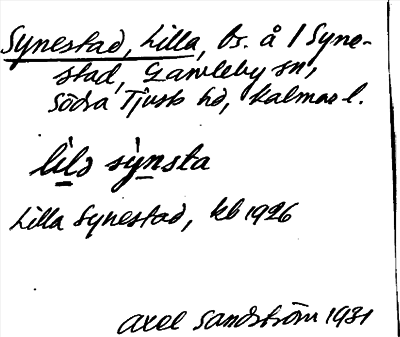 Synestad, Lilla, bs. å / Syne-
stad, Gamleby sn,
Södra Tjusts hd, Kalmar l.
lilə sẏnsta
Lilla Synestad, kb 1926
Axel Sandström 1931